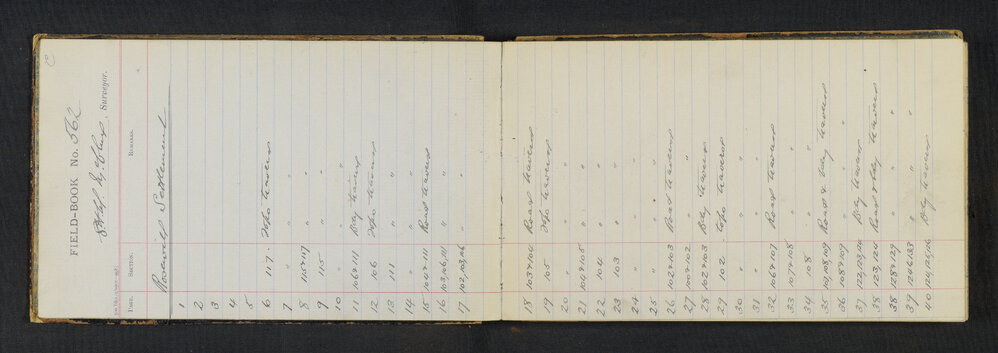 FIELD-BOOK No. 562
Surveyor.
PAGE. SECTION. REMARKS.
Settlement
1
2
3
4
5
6 117. Topo traverse
7 " "
8 115 & 117 "
9 115 "
10 " "
11 106 & 111 Bdy traverse
12 106 Topo traverse
13 111 "
14 " "
15 104 & 111 Road traverse
16 103, 106, 111 "
17 102, 103, 116 "
18 103 & 104 Road traverse
19 105 Topo traverse
20 " "
21 104 & 105 "
22 104 "
23 103 "
24 " "
25 " "
26 102 & 103 Road traverse
27 100 & 102 "
28 102 & 103 Bdy traverse
29 102 Topo traverse
30 " "
31 " "
32 106 & 107 Road traverse
33 107 & 108 "
34 108 "
35 103, 108, 109 Road & Bdy traverse
36 108 & 109 "
37 Bdy traverse
38 123, 124 Road & Bdy traverse
38 128 & 129 "
39 "
40 Bdy traverse